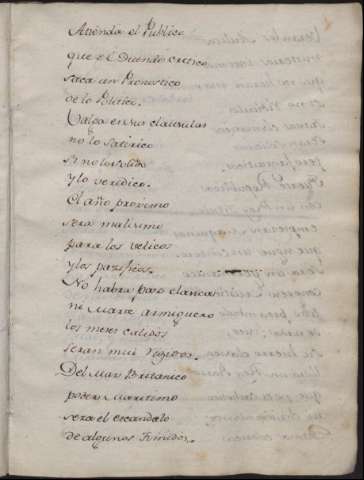 Atienda el Publico
que el Duende critico
saca un Pronostico
de lo Politico.
Valga en sus clausulas
no lo satirico
si no lo solido
y lo veridico.
El año proximo
sera malisimo
para los velicos
y los pazificos.
No habra paso
ni Marte armiguero
los meses calidos
seran mui rigidos.
Del Mar Britanico
poder Maritimo
sera el escandalo
de algunos timidos.